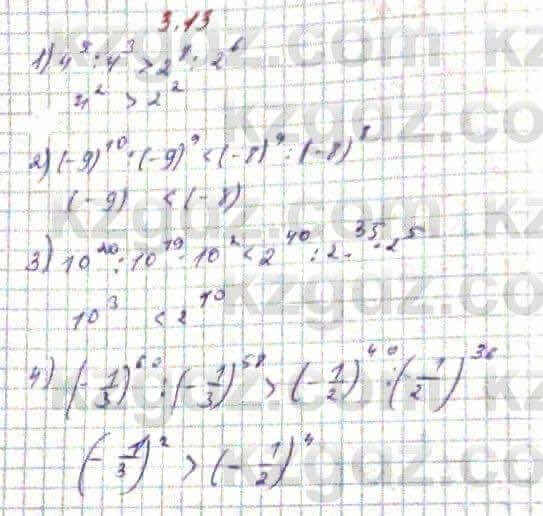 3.13
1) 4⁵ : 4³ > 2⁸ : 2⁶
4² > 2²
2) (-9)¹⁰ : (-9)⁹ < (-8)⁹ : (-8)⁸
(-9) < (-8)
3) 10²⁰ : 10¹⁹ · 10² < 2⁴⁰ : 2³⁵ · 2⁵
10³ < 2¹⁰
4) (-1/3)⁶⁰ : (-1/3)⁵⁸ > (-1/2)⁴⁰ : (-1/2)³⁶
(-1/3)² > (-1/2)⁴
kzgdz.com